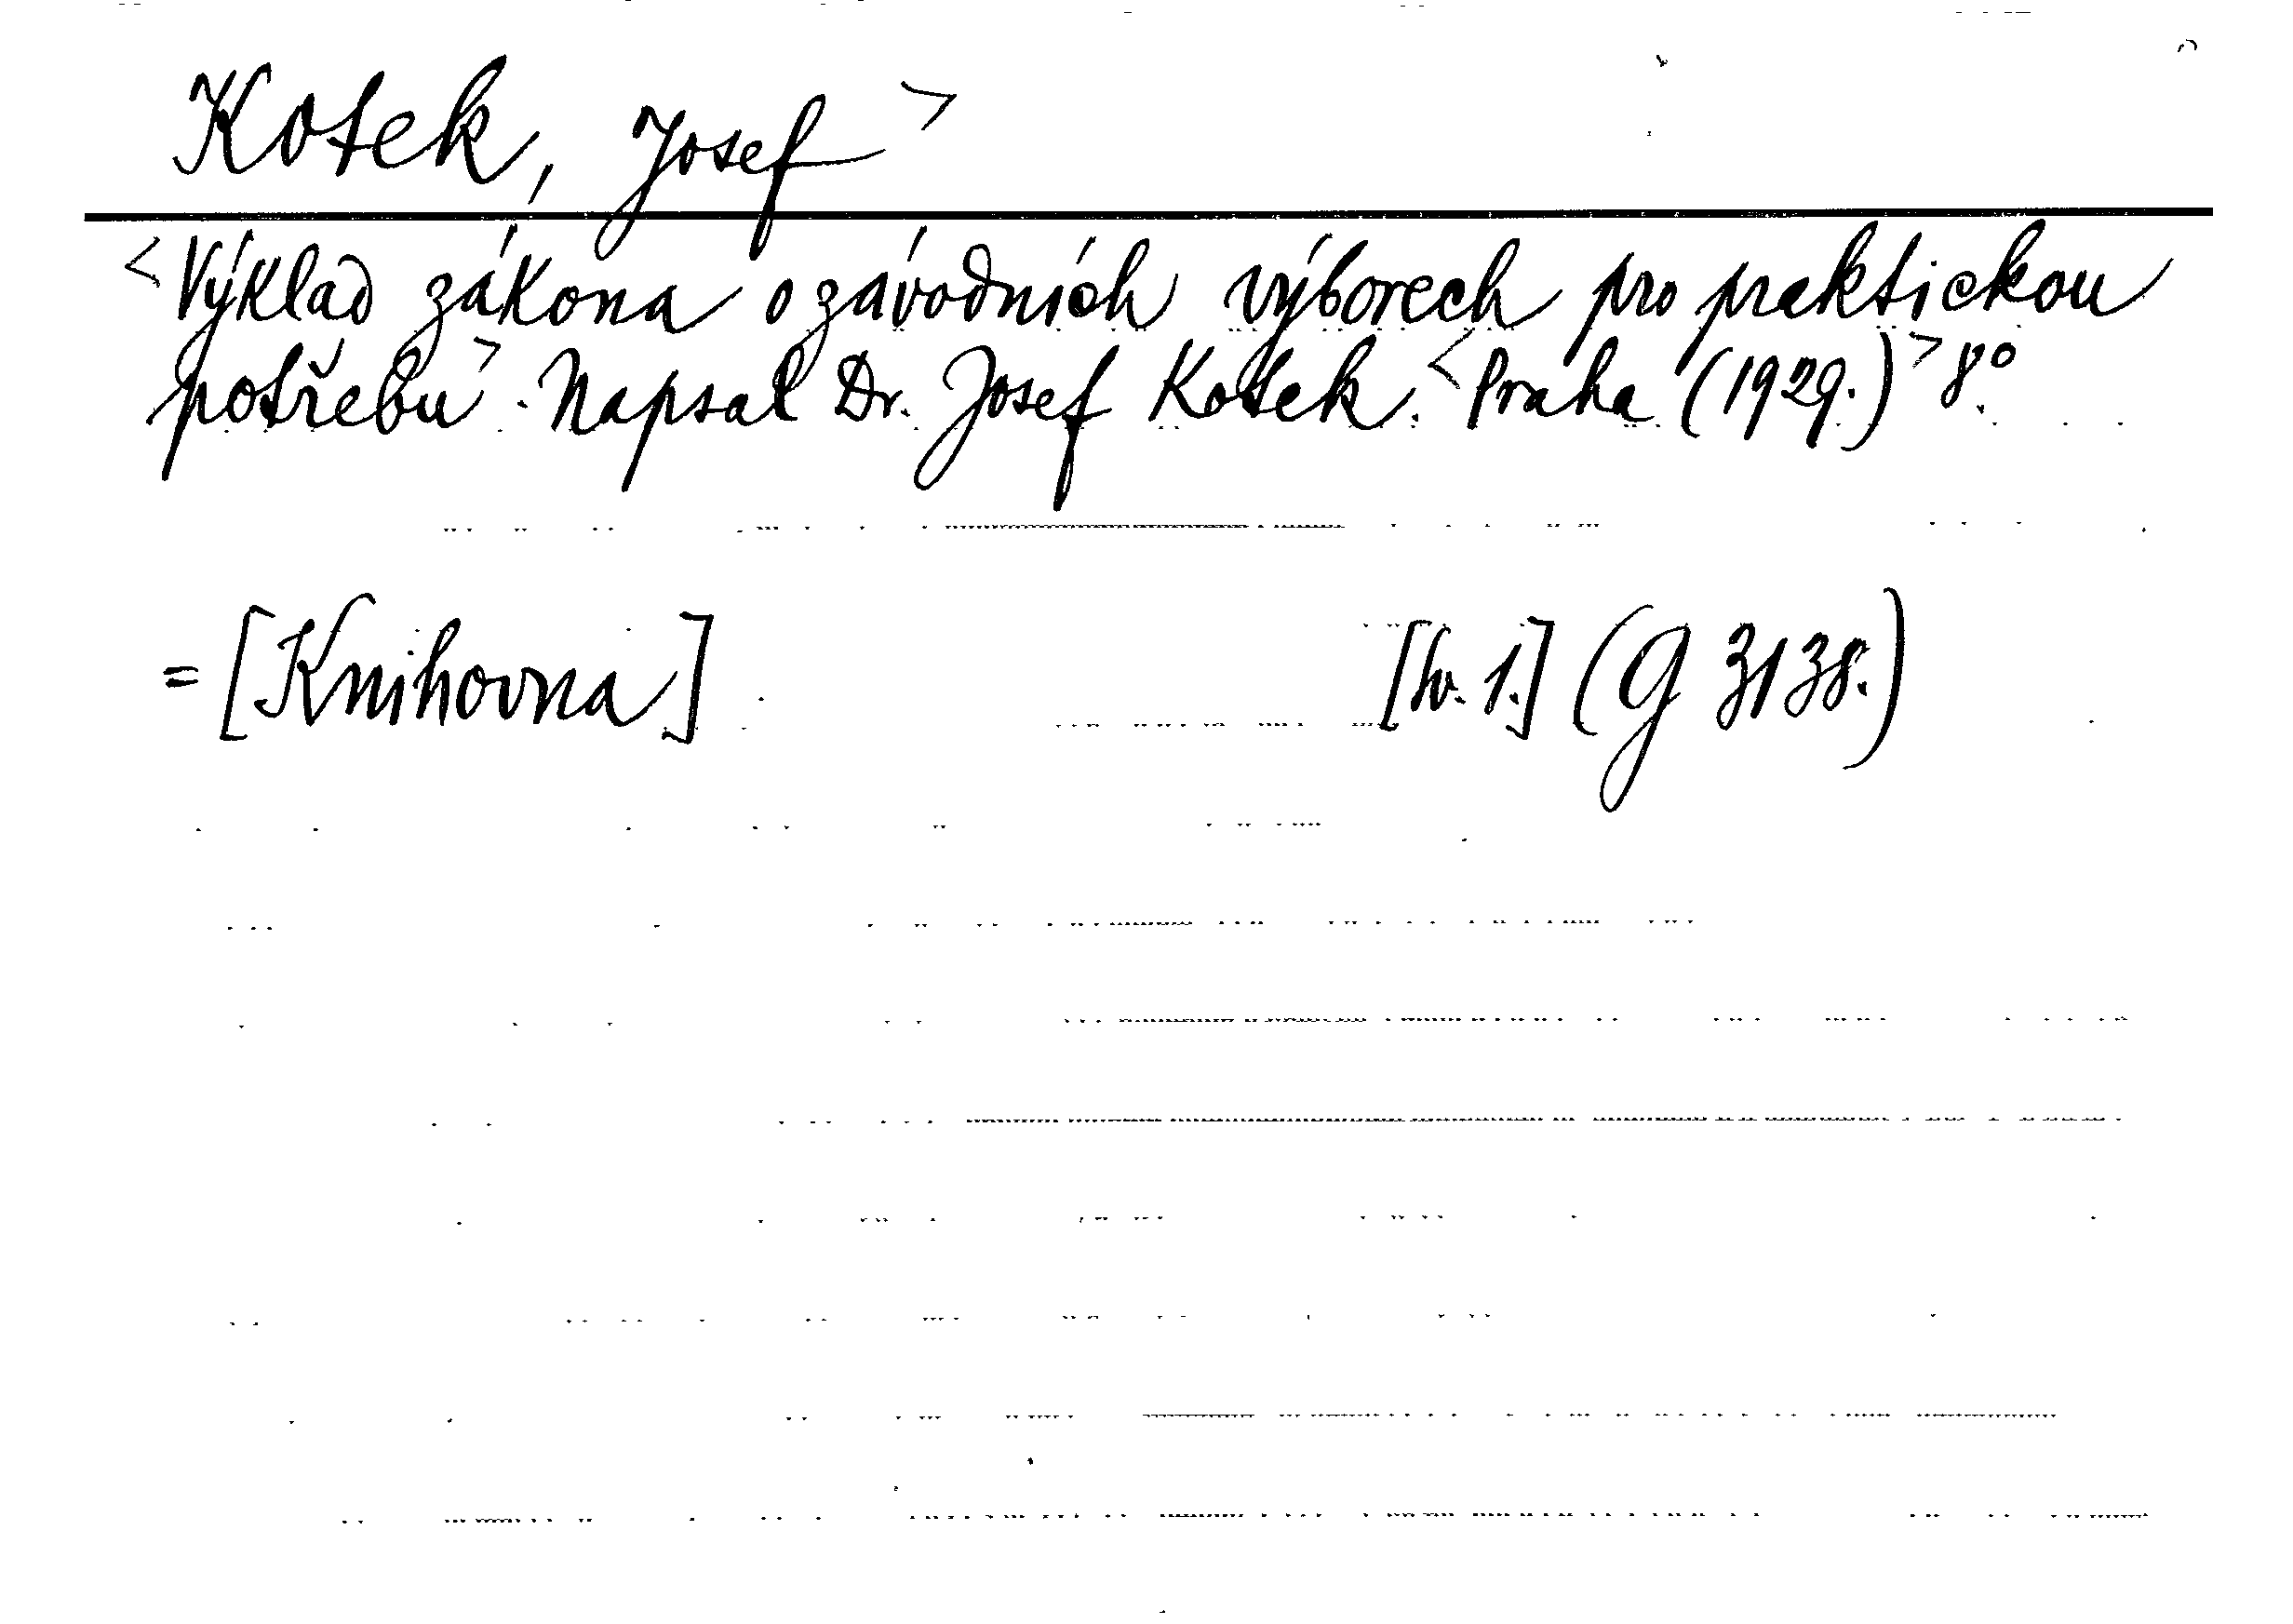 Kotek, Josef >
< Výklad zákona o závodních výborech pro praktickou
potřebu >. Napsal Dr. Josef Kotek. < Praha (1929.) > 8°.
= [Knihovna] [sv. 1.] (G 3138.)